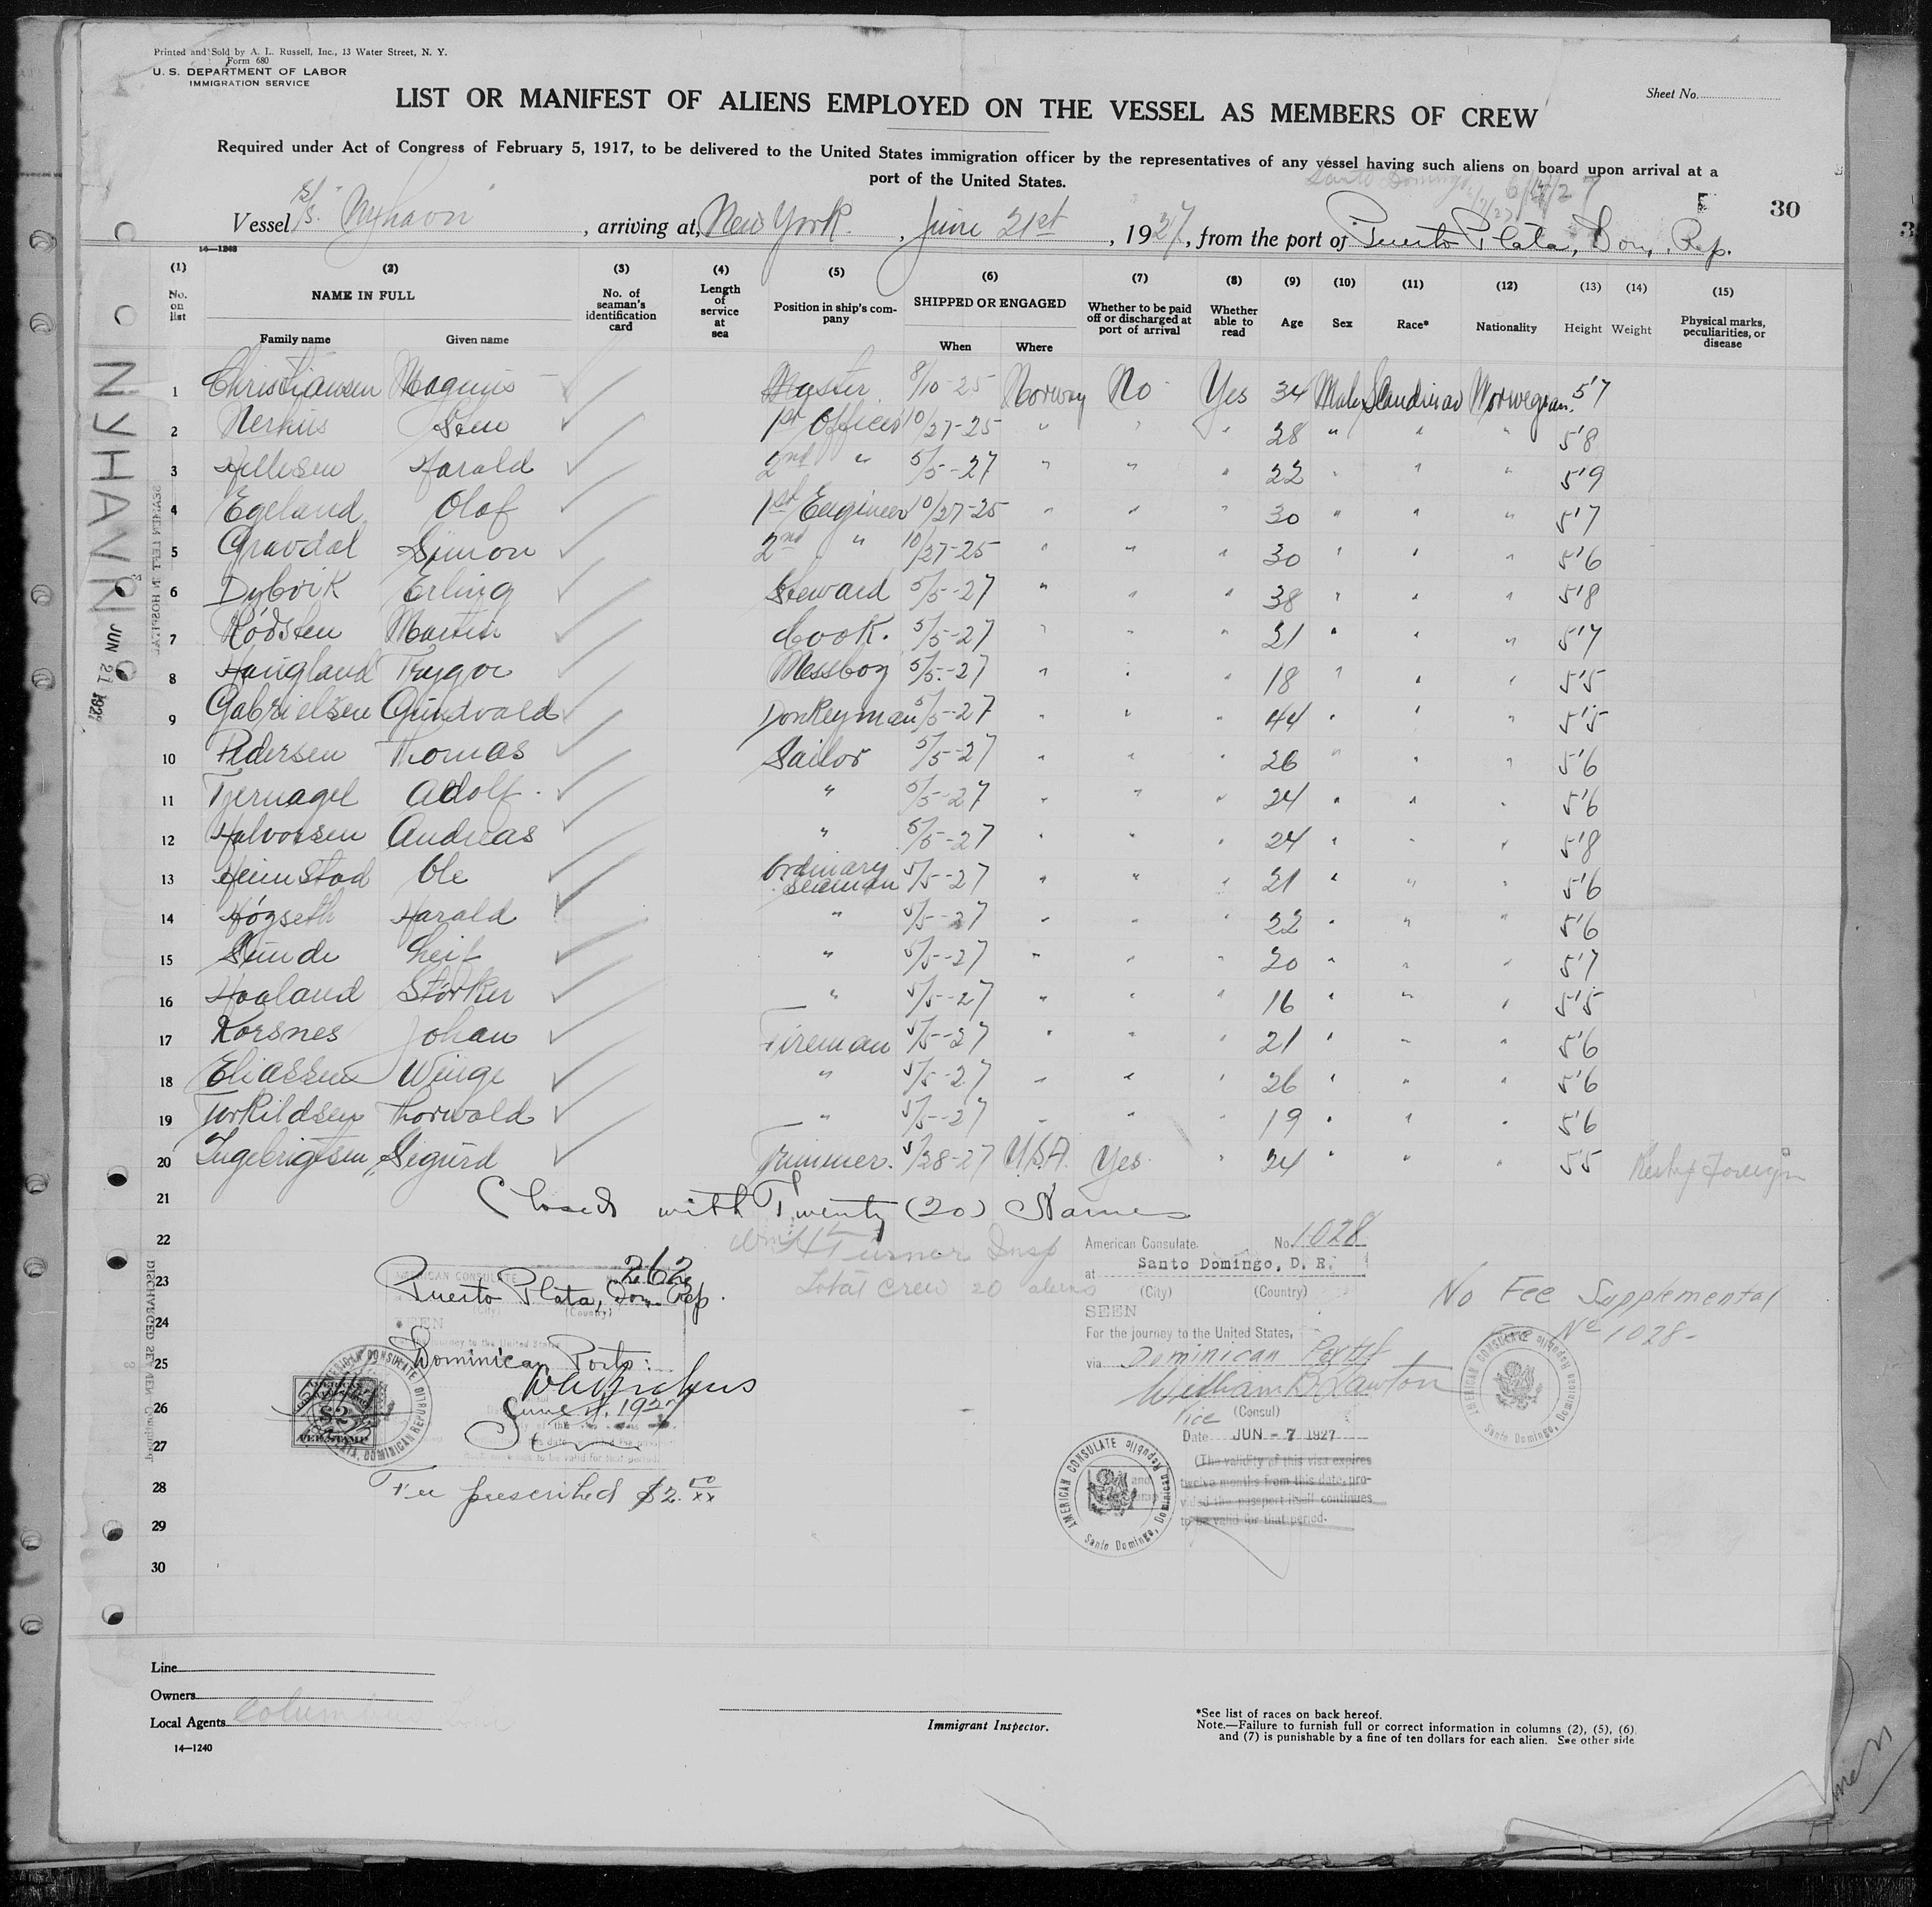 Printed and Sold by A. L. Russell, Inc., 13 Water Street, N. Y.
Form 680
U. S. DEPARTMENT OF LABOR
IMMIGRATION SERVICE
Sheet No.
LIST OR MANIFEST OF ALIENS EMPLOYED ON THE VESSEL AS MEMBERS OF CREW
Required under Act of Congress of February 5, 1917, to be delivered to the United States immigration officer by the representatives of any vessel having such aliens on board upon arrival at a
port of the United States.
Santo Domingo
30
Vessel S/S. Nyhavn, arriving at, New York., June 21st, 1927, from the port of Puerto Plata, Dom. Rep.
14—1240
(1) (2) (3) (4) (5) (6) (7) (8) (9) (10) (11) (12) (13) (14) (15)
No. on list NAME IN FULL Family name Given name No. of seaman's identification card Length of service at sea Position in ship's company SHIPPED OR ENGAGED When Where Whether to be paid off or discharged at port of arrival Whether able to read Age Sex Race* Nationality Height Weight Physical marks, peculiarities, or disease
1 Christiansen Magnus Master 8/10-25 Norway No Yes 34 Male Scandinav Norwegian 5'7
2 Nerhus 1st Officer 10/27-25 " " " 28 " " " 5'8
3 Harald 2nd " 5/5-27 " " " 22 " " " 5'9
4 Egeland Olaf 1st Engineer 10/27-25 " " " 30 " " " 5'7
5 Gravdal Simon 2nd " 10/27-25 " " " 30 " " " 5'6
6 Dybvik Erling Steward 5/5-27 " " " 38 " " " 5'8
7 Rödsten Martin Cook. 5/5-27 " " " 21 " " " 5'7
8 Haugland Trygve Messboy 5/5-27 " " " 18 " " " 5'5
9 Gabrielsen Gundvald Donkeyman 5/5-27 " " " 44 " " " 5'5
10 Pedersen Thomas Sailor 5/5-27 " " " 26 " " " 5'6
11 Tjernagel Adolf " 5/5-27 " " " 24 " " " 5'6
12 Halvorsen Andreas " 5/5-27 " " " 24 " " " 5'8
13 Heimstad Ole Ordinary Seaman 5/5-27 " " " 21 " " " 5'6
14 Högseth Harald " 5/5-27 " " " 22 " " " 5'6
15 Sunde Leif " 5/5-27 " " " 20 " " " 5'7
16 Haaland Störker " 5/5-27 " " " 16 " " " 5'5
17 Korsnes Johan Fireman 5/5-27 " " " 21 " " " 5'6
18 Eliassen Winge " 5/5-27 " " " 26 " " " 5'6
19 Torkildsen Thorvald " 5/5-27 " " " 19 " " " 5'6
20 Ingebrigtsen, Sigurd Trimmer. 5/28-27 U.S.A. Yes " 24 " " " 5'5 Reship Foreign
21 Closed with Twenty (20) Names
22 Turner Insp
23 Total crew 20 aliens
24
25
26
27
28
29
30
NYHAVN JUN 21 1927
SEAMEN LEFT IN HOSPITAL
DISCHARGED SEAMEN
AMERICAN CONSULATE
No. 262
Puerto Plata, Dom. Rep.
(City) (Country)
SEEN
For the journey to the United States
Dominican Ports:
June 4, 1927
$2
FEE STAMP
Fee prescribed $2.00/xx
American Consulate. No. 1028
at Santo Domingo, D. R.
(City) (Country)
SEEN
For the journey to the United States,
via Dominican Ports
William B. Lawton
Vice (Consul)
Date JUN - 7 1927
(The validity of this visa expires
twelve months from this date, pro-
vided the passport itself continues
to be valid for that period.
AMERICAN CONSULATE Santo Domingo, Dominican Republic
No Fee Supplemental
No 1028-
AMERICAN CONSULATE Santo Domingo, Dominican Republic
Line
Owners
Local Agents Columbus
14—1240
Immigrant Inspector.
*See list of races on back hereof.
Note.—Failure to furnish full or correct information in columns (2), (5), (6)
and (7) is punishable by a fine of ten dollars for each alien. See other side